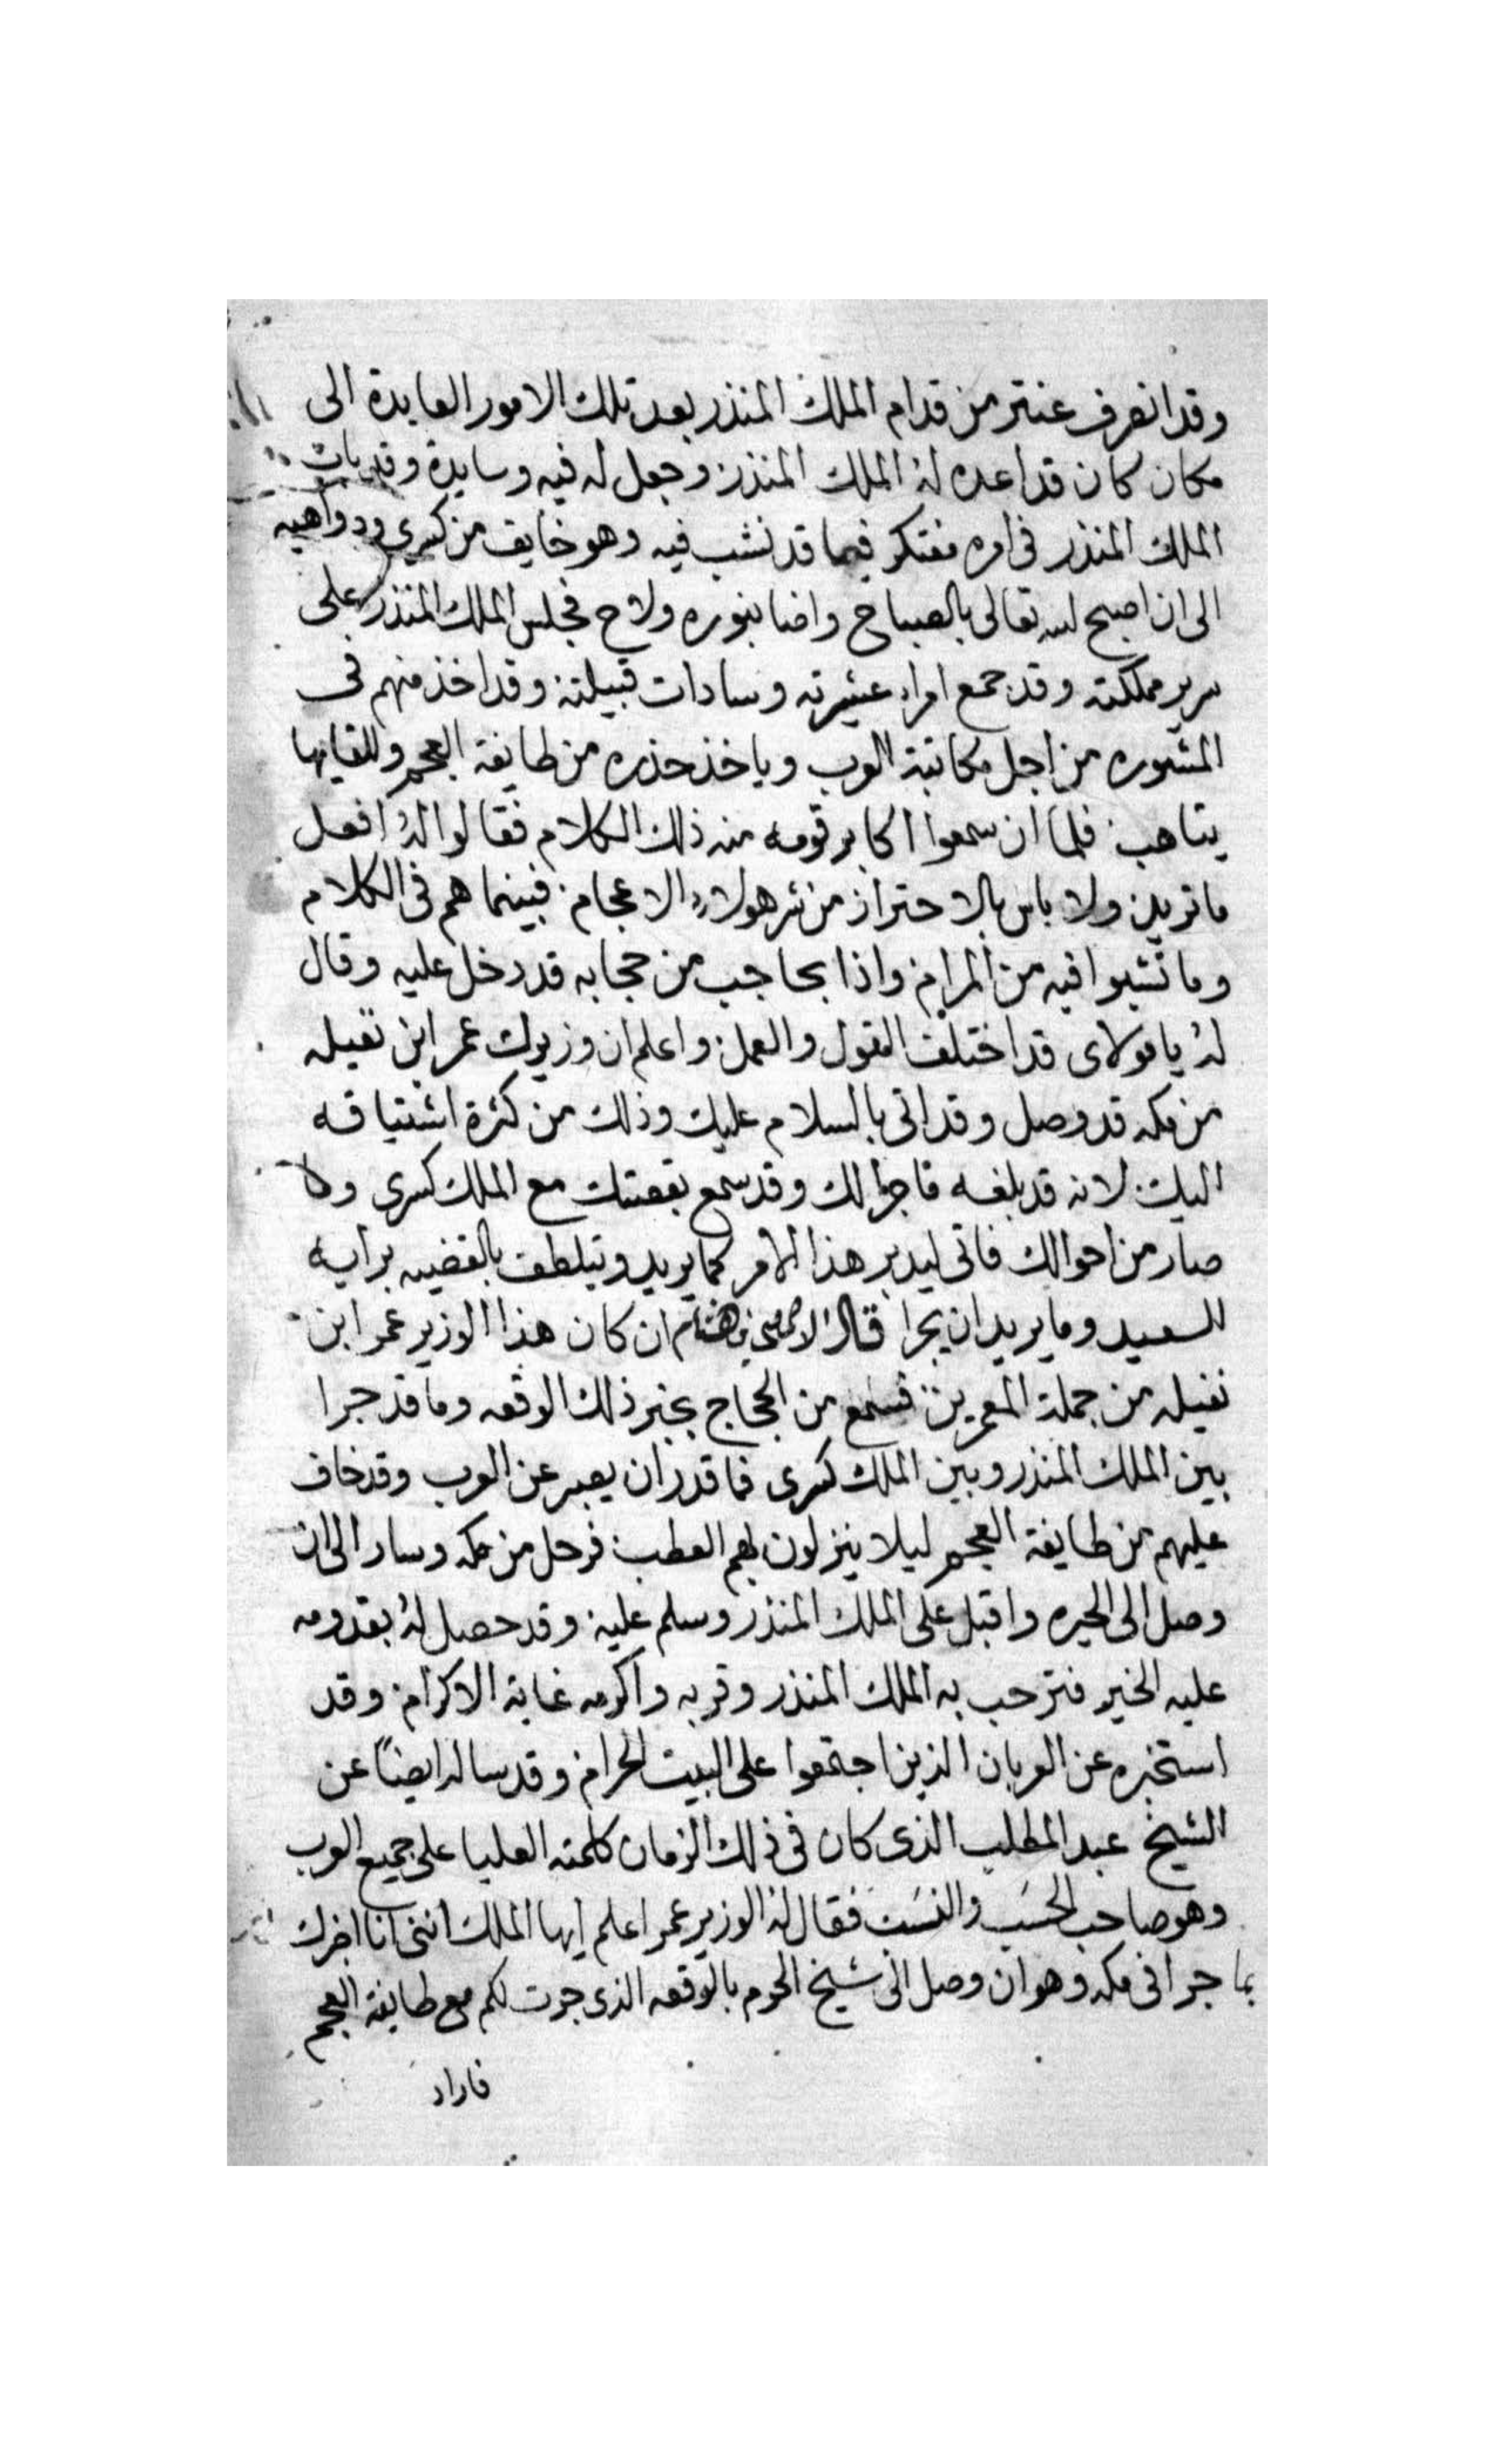 وقد انصرف عنتر من قدام الملك المنذر بعد تلك الامور العايدة الى
مكان كان قد اعده له الملك المنذر وجعل له فيه وسايدة وقد بات
الملك المنذر فى امره مفتكر فيما قد نشب فيه وهو خايف من كسرى ودواهيه
الى ان اصبح الله تعالى بالصباح واضا بنوره ولاح فجلس الملك المنذر على
سرير مملكته وقد جمع امراء عشيرته وسادات قبيلته وقد اخذ منهم فى
المشوره من اجل مكاتبة العرب وياخذ حذره من طايفة العجم وللقايها
يتاهب فلما ان سمعوا اكابر قومه منه ذلك الكلام فقالوا له افعل
ما تريد ولا باس بالاحتراز من شر هولاء الاعجام فبينما هم فى الكلام
وما نشبوا فيه من المرام واذا بحاجب من حجابه قد دخل عليه وقال
له يا مولاى قد اختلف القول والعمل واعلم ان وزيرك عمر ابن نفيله
من مكه قد وصل وقد اتى بالسلام عليك وذلك من كثرة اشتياقه
اليك لانه قد بلغه ما جرا لك وقد سمع بقصتك مع الملك كسرى وما
صار من احوالك فاتى ليدبر هذا الامر كما يريد ويتلطف بالقضيه برايه
السعيد وما يريد ان يجرا قال الاصمعى هشام ان كان هذا الوزير عمر ابن
نفيله من جملة المعمرين فسمع من الحجاج بخبر ذلك الوقعه وما قد جرا
بين الملك المنذر وبين الملك كسرى فما قدر ان يصبر عن العرب وقد خاف
عليهم من طايفة العجم ليلا ينزلون بهم العطب فرحل من مكه وسار الى ان
وصل الى الحيره واقبل على الملك المنذر وسلم عليه وقد حصل له بقدومه
عليه الخير فترحب به الملك المنذر وقربه واكرمه غاية الاكرام وقد
استخبره عن العربان الذين اجتمعوا على البيت الحرام وقد ساله ايضاً عن
الشيخ عبد المطلب الذى كان فى ذلك الزمان كلمته العليا على جميع العرب
وهو صاحب الحسَب والنسَب فقال له الوزير عمر اعلم ايها الملك اننى انا اخبرك
بما جرا فى مكه وهو ان وصل الى شيخ الحرم بالوقعه الذى جرت لكم مع طايفة العجم
فاراد